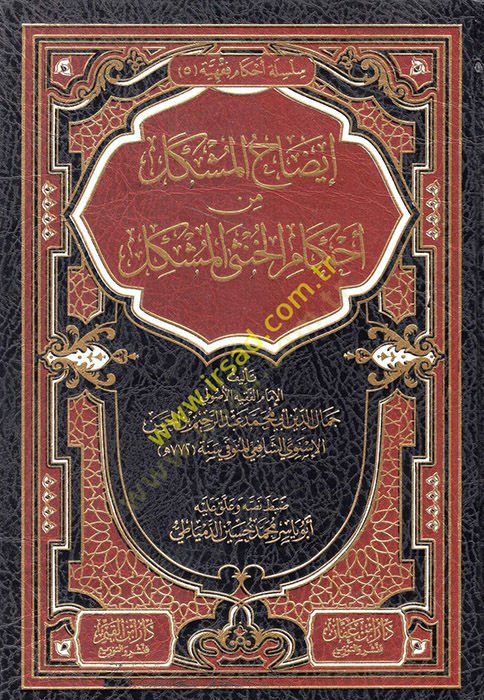 سلسلة أحكام فقهية (٥)
إيضاح المشكل
من
أحكام الخنثى المشكل
تأليف
الإمام الفقيه الأصولي
جمال الدين أبي محمد عبد الرحيم بن الحسن
الإسنوي الشافعي المتوفى سنة (٧٧٢هـ)
ضبط نصه وعلق عليه
أبو ياسر محمد حسين الدمياطي
دار ابن عفان
للنشر والتوزيع
دار ابن القيم
للنشر والتوزيع
www.irsad.com.tr